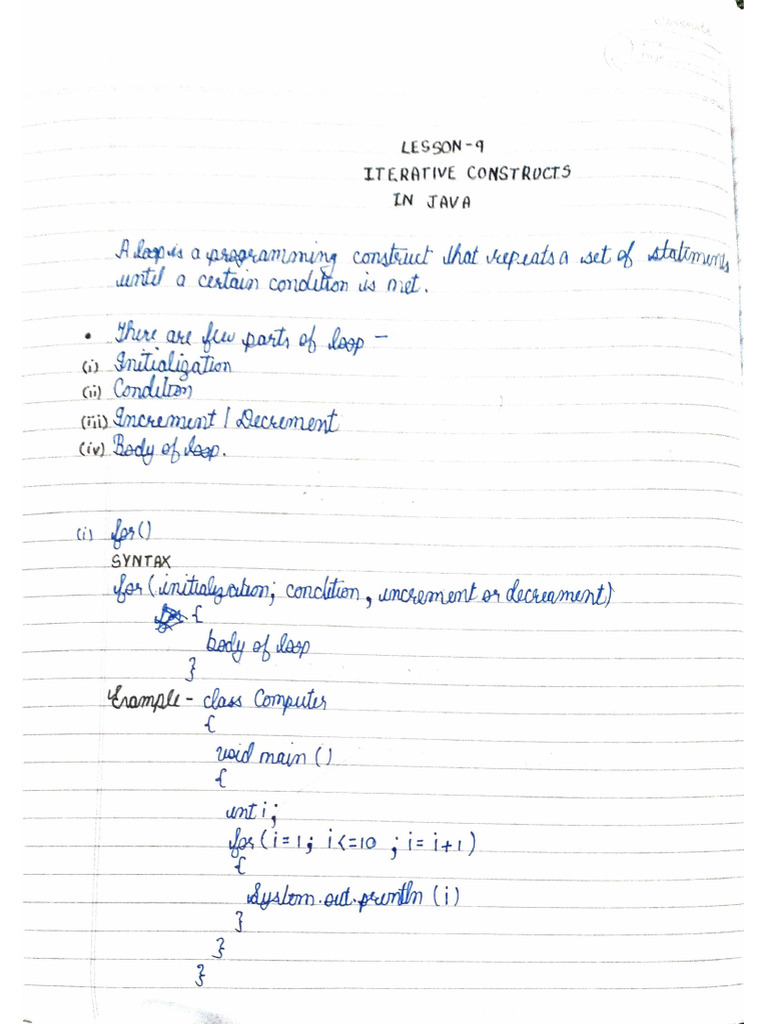 classmate
LESSON-9
ITERATIVE CONSTRUCTS
IN JAVA
A loop is a programming construct that repeats a set of statements
until a certain condition is met.
• There are few parts of loop —
(i) Initialization
(ii) Condition
(iii) Increment / Decrement
(iv) Body of loop.
(i) for()
SYNTAX
for (initialization; condition, increment or decreament)
{
body of loop
}
Example - class Computer
{
void main ()
{
int i;
for (i=1; i<=10 ; i= i+1)
{
System.out.println (i)
}
}
}